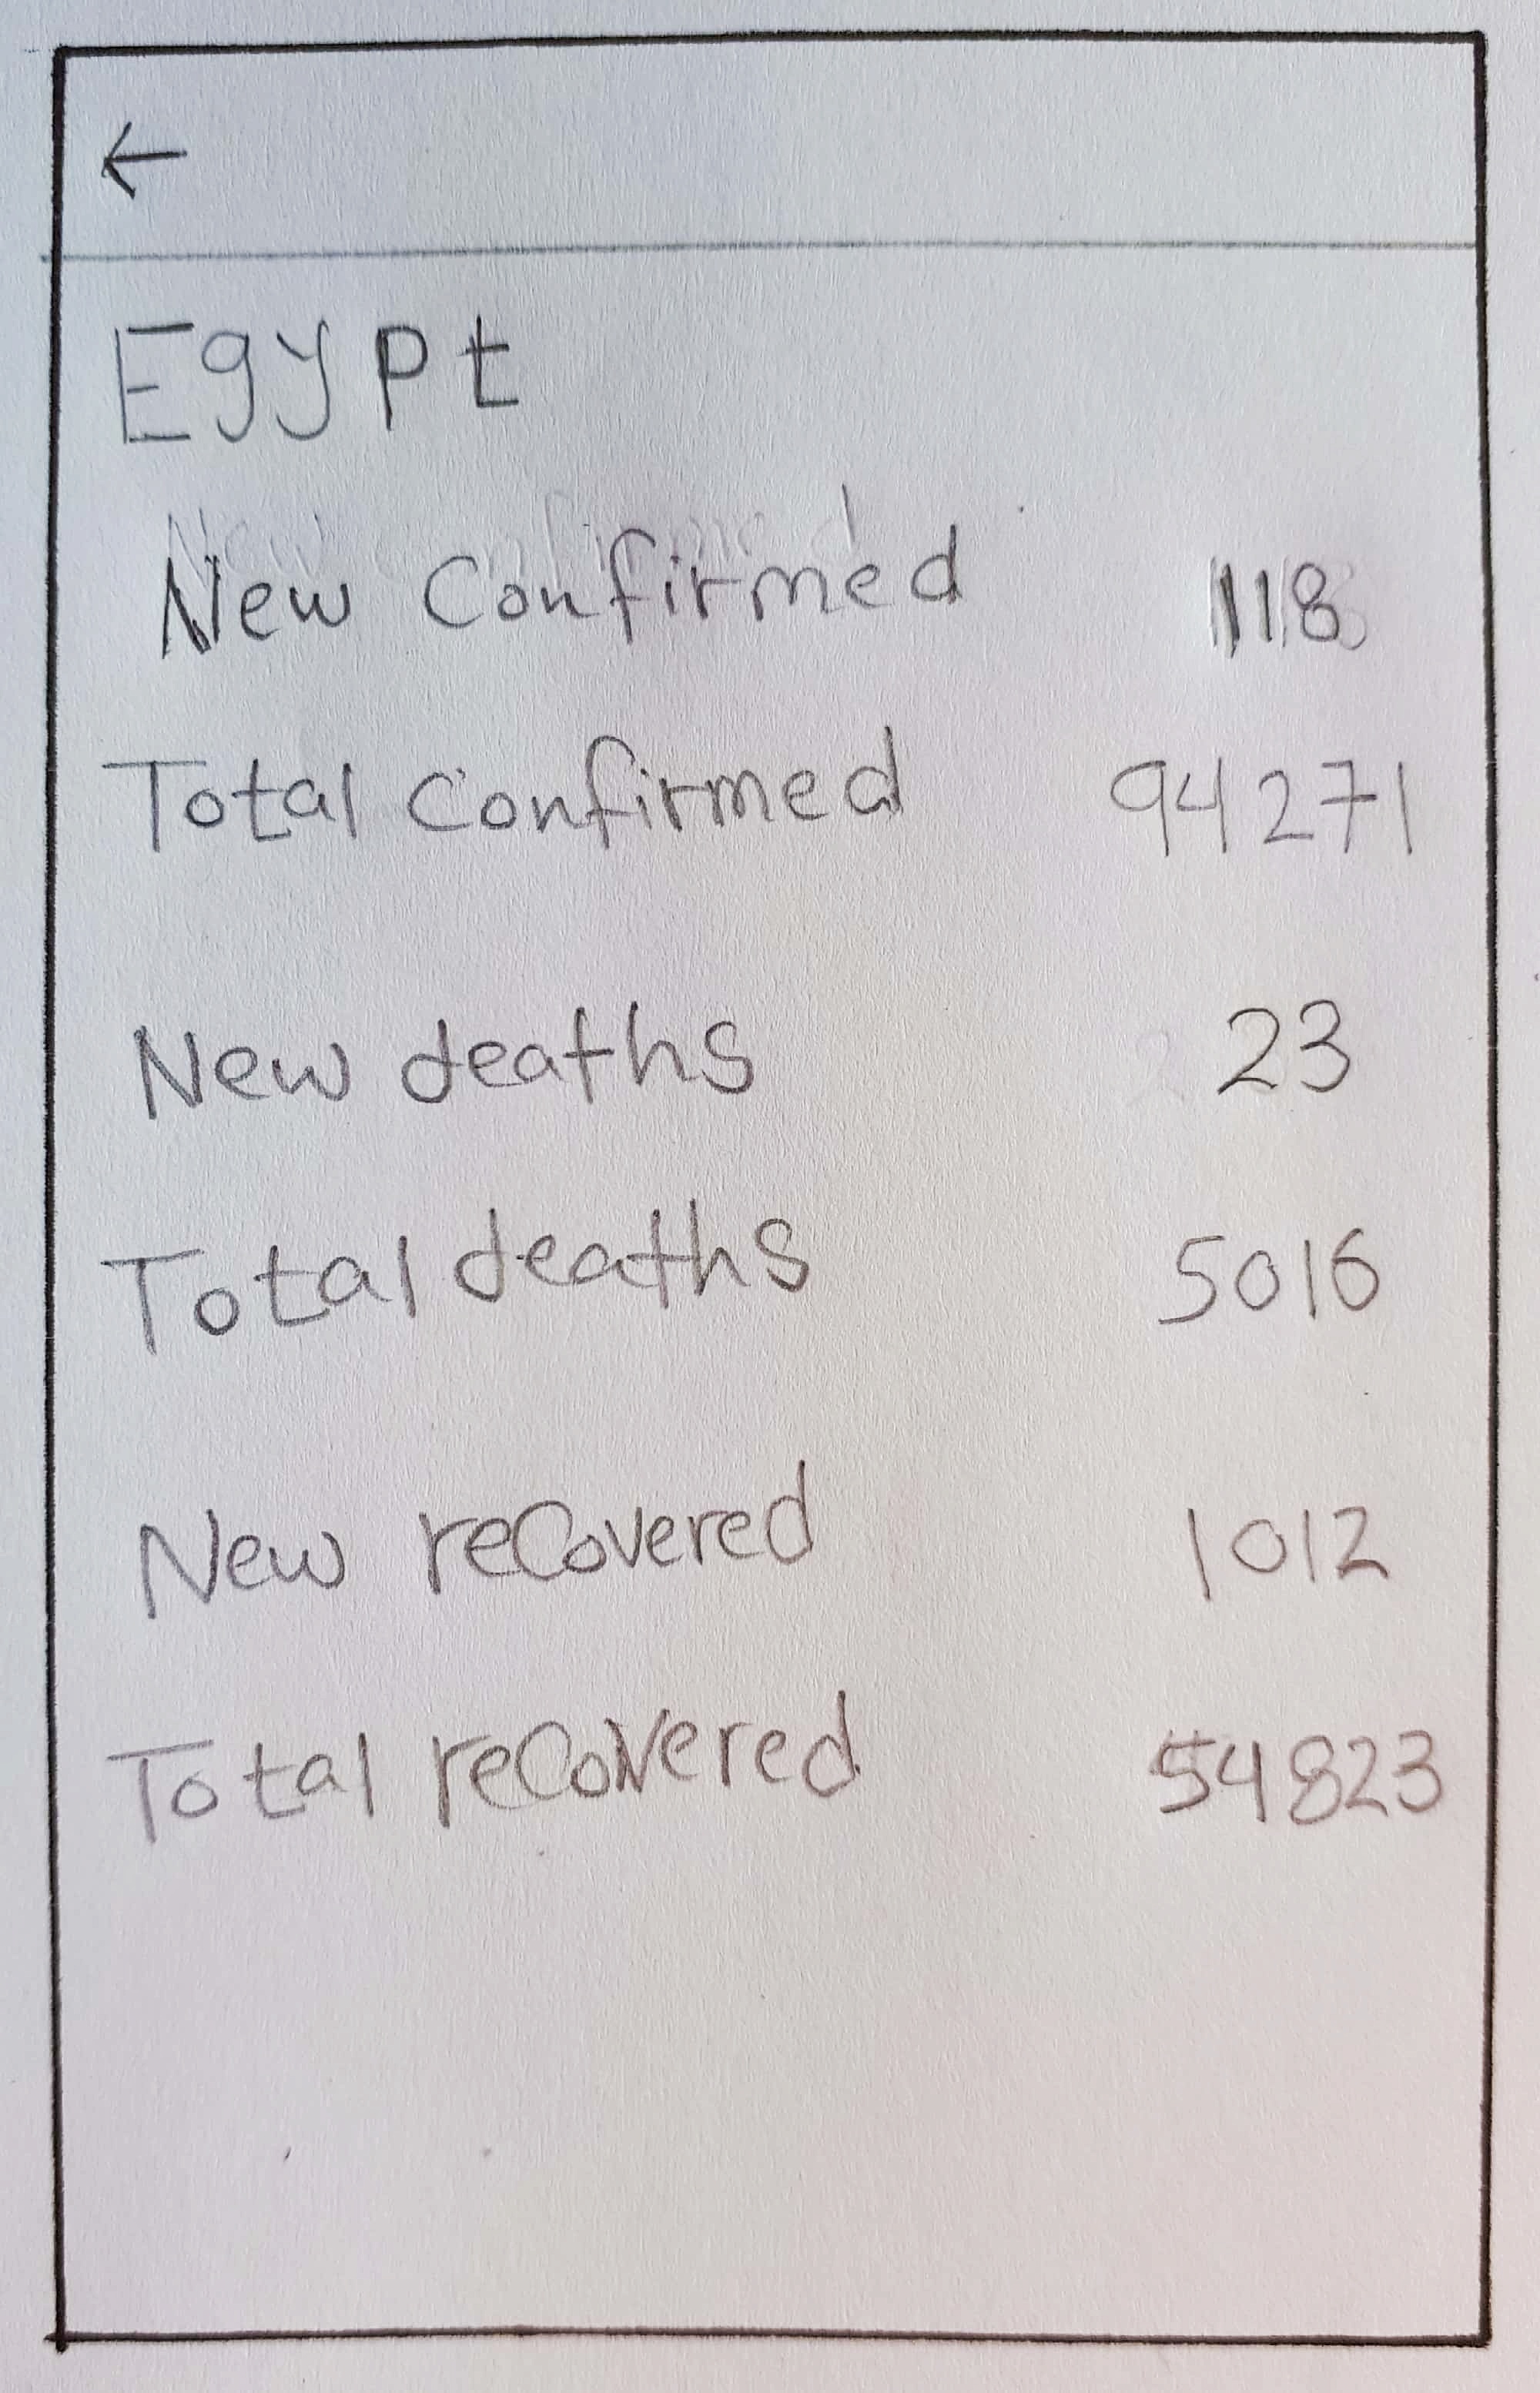 ←
Egypt
New Confirmed 118
Total Confirmed 94271
New deaths 23
Total deaths 5016
New recovered 1012
Total recovered 54823